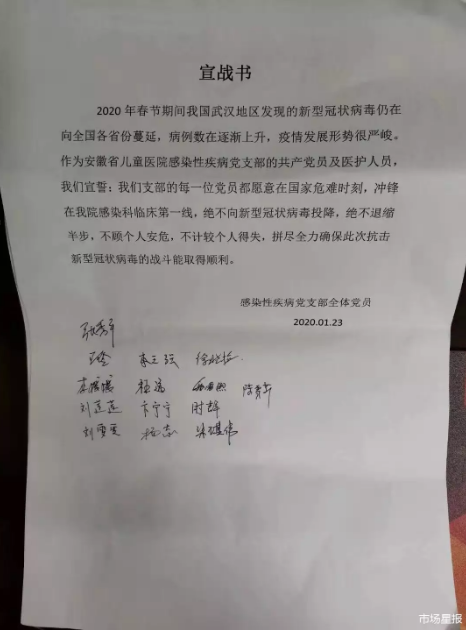 宣战书
2020 年春节期间我国武汉地区发现的新型冠状病毒仍在
向全国各省份蔓延，病例数在逐渐上升，疫情发展形势很严峻。
作为安徽省儿童医院感染性疾病党支部的共产党员及医护人员，
我们宣誓：我们支部的每一位党员都愿意在国家危难时刻，冲锋
在我院感染科临床第一线，绝不向新型冠状病毒投降，绝不退缩
半步，不顾个人安危，不计较个人得失，拼尽全力确保此次抗击
新型冠状病毒的战斗能取得顺利。
感染性疾病党支部全体党员
2020.01.23
刘莲莲 卞宁宁
市场星报